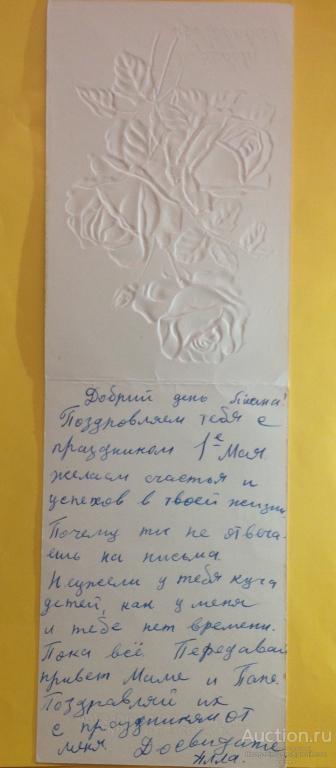 Добрий день Диана!
Поздровляем тебя с
праздником 1е Мая
желаем счастья и
успехов в твоей жизни.
Почему ти не отвеча-
ешь на письма
Неужели у тебя куча
детей, как у меня
и тебе нет времени.
Пока всё Передавай
привет Маме и Папе.
Поздравляй их
с праздником от
меня Досвидание
Алла.
Аукцион.ru